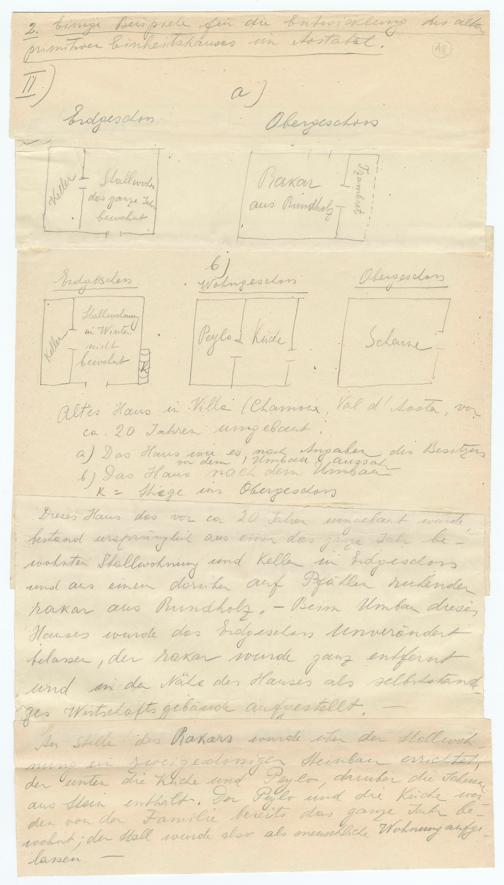 2. Einige Beispiele für die Entwicklung des alten
primitiven Einheitshauses im Aostatal.
II)
a)
Erdgeschoss
Obergeschoss
Keller
Stallwohn
das ganze Jahr
bewohnt
Rakar
aus Rundholz
b)
Erdgeschoss
Wohngeschoss
Obergeschoss
Keller
Stallwohnung
im Winter
nicht
bewohnt
K
Peylo
Küche
Scheune
Altes Haus in Villa (Chamois, Val d'Aosta, vor
ca. 20 Jahren umgebaut.
a) Das Haus wie es, nach Angaben des Besitzers
vor dem Umbau aussah
b) Das Haus nach dem Umbau
K = Stiege ins Obergeschoss
Dieses Haus das vor ca 20 Jahren umgebaut wurde,
bestand ursprünglich aus einer das ganze Jahr be-
wohnten Stallwohnung und Keller im Erdgeschoss
und aus einem darüber auf Pfählen ruhenden
rakar aus Rundholz. – Beim Umbau dieses
Hauses wurde das Erdgeschoss unverändert
belassen, der rakar wurde ganz entfernt
und in der Nähe des Hauses als selbststand-
ges Wirtschaftsgebäude aufgestellt. —
An Stelle des Rakars wurde über der Stallwoh
nung ein zweigeschossiger Steinbau errichtet,
der unten die Küche und Peylo, darüber die Scheune
aus Stein enthält. Der Peylo und die Küche wer-
den von der Familie bereits das ganze Jahr be-
wohnt; der Stall wurde also als menschliche Wohnung aufge-
lassen —